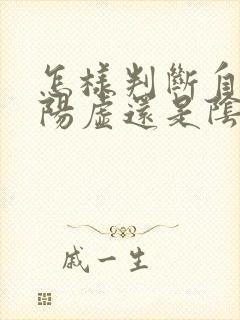 怎樣判斷自
陽虛還是陰
戚一生